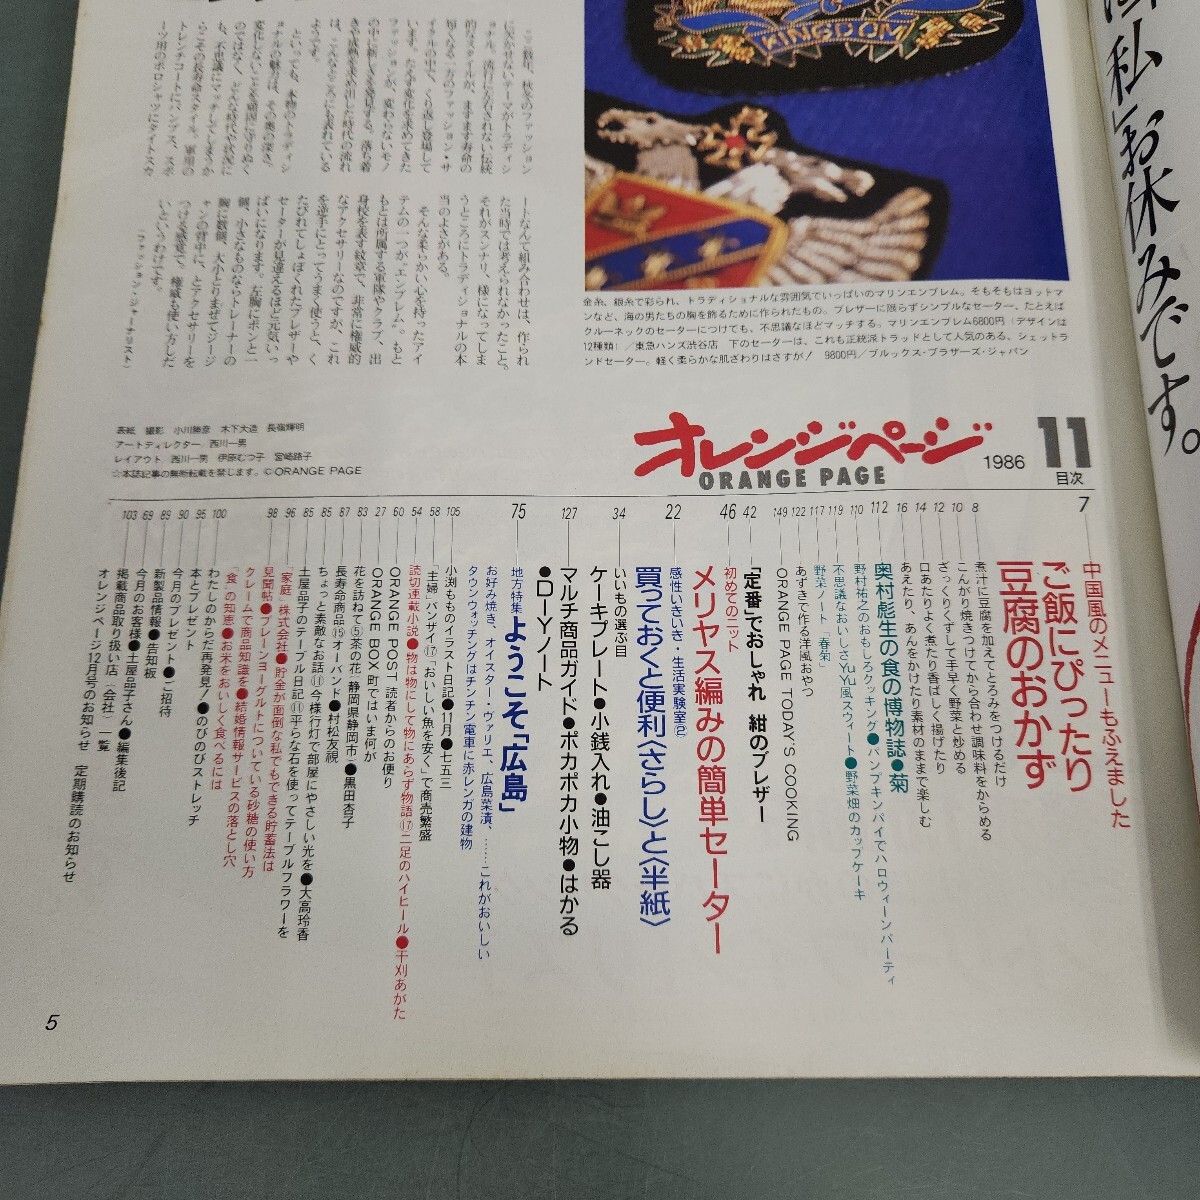 KINGDOM
私、お休みです。
ここ数年、秋冬のファッション
に欠かせないテーマがトラディシ
ョナル。流行に左右されない伝統
的なスタイルが、ますます寿命の
短くなる一方のファッション・サ
イクルの中で、くり返し登場して
います。たえず変化を求めてきた
ファッションが、変わらないモノ
の中に新しさを発見する。落ち着
きや成熟を求め出した時代の流れ
は、こんなところにも表れている
ようです。
といっても、本物のトラディシ
ョナルの魅力は、その奥の深さ。
変化しないことを頑固に守りぬく
のではなく、どんな時代や状況に
も、不思議にマッチしてしまうか
らこその長寿命スタイル。軍用の
トレンチコートにパンプス、スポ
ーツ用のポロシャツにタイトスカ
ートなんて組み合わせは、作られ
た当時では考えられなかったこと。
それがスンナリ、様になってしま
うところにトラディショナルの本
当のよさがある。
そんな柔らかい心を持ったアイ
テムの一つが、エンブレム。もと
もとは所属する軍隊やクラブ、出
身校を表す紋章で、非常に権威的
なアクセサリーなのですが、これ
を逆手にとってうまく使うと、く
たびれてしょぼくれたブレザーや
セーターが見違えるほど元気いっ
ぱいになります。左胸にポンと一
個、小さなものならトレーナーの
胸に数個、大小とりまぜてジージ
ャンの背中に、とアクセサリーを
つける感覚で。権威も使い方しだ
いというわけです。
(ファッション・ジャーナリスト)
金糸、銀糸で彩られ、トラディショナルな雰囲気でいっぱいのマリンエンブレム。そもそもはヨットマ
ンなど、海の男たちの胸を飾るために作られたもの。ブレザーに限らずシンプルなセーター、たとえば
クルーネックのセーターにつけても、不思議なほどマッチする。マリンエンブレム6800円(デザインは
12種類)/東急ハンズ渋谷店 下のセーターは、これも正統派トラッドとして人気のある、シェットラ
ンドセーター。軽く柔らかな肌ざわりはさすが! 9800円/ブルックス・ブラザーズ・ジャパン
表紙 撮影 小川勝彦 木下大造 長嶺輝明
アートディレクター 西川一男
レイアウト 西川一男 伊原むつ子 宮崎路子
☆本誌記事の無断転載を禁じます。©ORANGE PAGE
オレンジページ
ORANGE PAGE
1986
11
目次
7
中国風のメニューもふえました
ご飯にぴったり
豆腐のおかず
8 煮汁に豆腐を加えてとろみをつけるだけ
10 こんがり焼きつけてから合わせ調味料をからめる
12 ざっくりくずして手早く野菜と炒める
14 口あたりよく煮たり香ばしく揚げたり
16 あえたり、あんをかけたり素材のままで楽しむ
112 奥村彪生の食の博物誌●菊
110 野村祐之のおもしろクッキング●パンプキンパイでハロウィーンパーティ
119 不思議なおいしさYU風スウィート●野菜畑のカップケーキ
117 野菜ノート「春菊」
122 あずきで作る洋風おやつ
149 ORANGE PAGE TODAY'S COOKING
42 「定番」でおしゃれ 紺のブレザー
46 初めてのニット
メリヤス編みの簡単セーター
22 感性いきいき・生活実験室②
買っておくと便利〈さらし〉と〈半紙〉
34 いいもの選ぶ目
ケーキプレート●小銭入れ●油こし器
127 マルチ商品ガイド●ポカポカ小物●はかる
●DIYノート
75 地方特集 ようこそ「広島」
お好み焼き、オイスター・ヴァリエ、広島菜漬、……これがおいしい
タウンウォッチングはチンチン電車に赤レンガの建物
105 小渕もものイラスト日記●11月●七五三
「主婦」バンザイ⑰「おいしい魚を安く」で商売繁盛
54 読切連載小説●物は物にして物にあらず物語⑰二足のハイヒール●干刈あがた
60 ORANGE POST 読者からのお便り
27 ORANGE BOX 町ではいま何が
83 花を訪ねて⑤茶の花(静岡県静岡市)●黒田杏子
87 長寿命商品⑮オーバンド●村松友視
85 ちょっと素敵なお話⑪今様行灯で部屋にやさしい光を●大高玲香
85 土屋品子のテーブル日記⑪平らな石を使ってテーブルフラワーを
96 「家庭」株式会社●貯金が面倒な私でもできる貯蓄法は
98 見聞帖●プレーンヨーグルトについている砂糖の使い方
クレームで商品知識を●結婚情報サービスの落とし穴
「食」の知恵●お米をおいしく食べるには
100 わたしのからだ再発見!●のびのびストレッチ
95 本とプレゼント
90 今月のプレゼント●ご招待
89 新製品情報●告知板
69 今月のお客様●土屋品子さん●編集後記
103 掲載商品取り扱い店(会社)一覧
オレンジページ12月号のお知らせ 定期購読のお知らせ
5